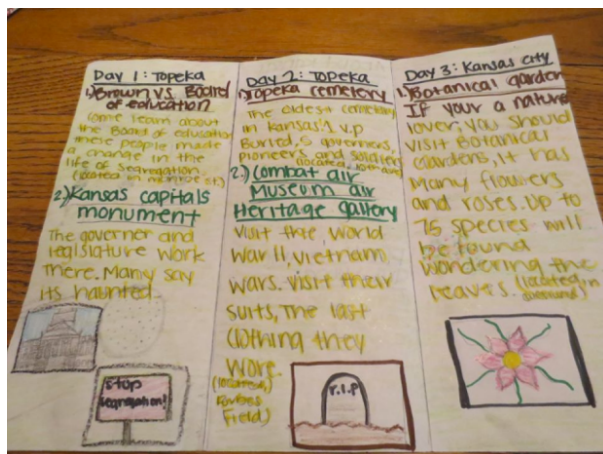 Day 1: Topeka
1) Brown v.s. Board
of education
Come learn about
the Board of education
these people made
a change in the
life of segregation
(located in monroe st.)
2) Kansas capitals
monument
The governer and
legislature work
There. Many say
its haunted
stop
segregation!
Day 2: Topeka
1) Topeka cemetery
The oldest cemetery
in Kansas. 1 v.p
Buried, 5 governers,
pioneers and soldiers
(located,
2.) Combat air
Museum air
Heritage gallery
visit the, world
war II, vietnam,
wars. visit their
suits, The last
clothing they
wore.
(located,
Forbes
Field)
r.i.p
Day 3: Kansas city
1) Botanical garden
If your a nature
lover, you should
visit Botanical
Gardens, it has
many flowers
and roses. up to
75 species will
be found
wondering the
leaves. (located in